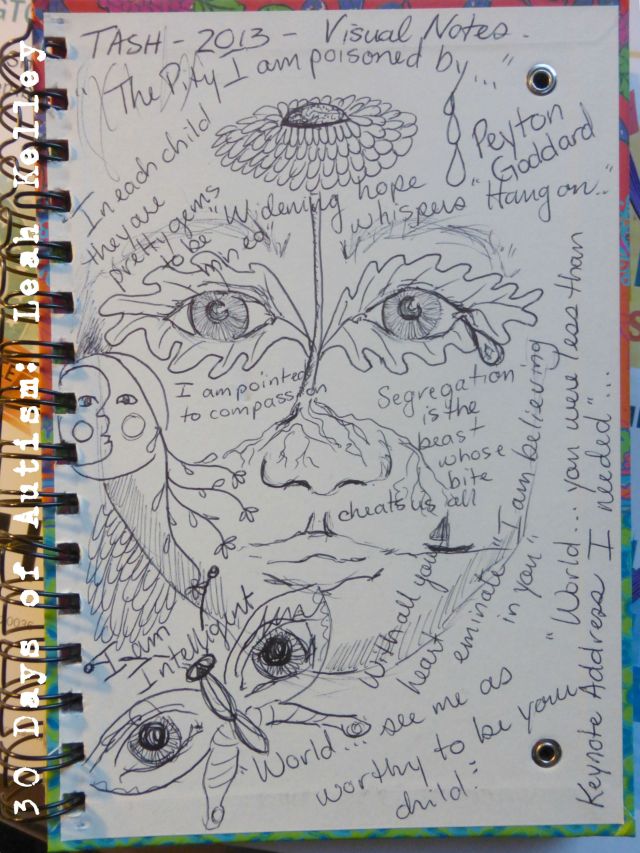 TASH - 2013 - Visual Notes.
"The Pity I am poisoned by..."
Peyton
Goddard
In each child
they are
pretty gems
to be
mined"
"Widening hope
whispers "Hang on.."
I am pointed
to compassion
Segregation
is the
beast
whose
bite
cheats us all
With all your
heart eminate "I am believing
in you"
"World... you were less than
I needed"...
Keynote Address
I am
Intelligent
"World... see me as
worthy to be your
child."
30 Days of Autism: Leah Kelley